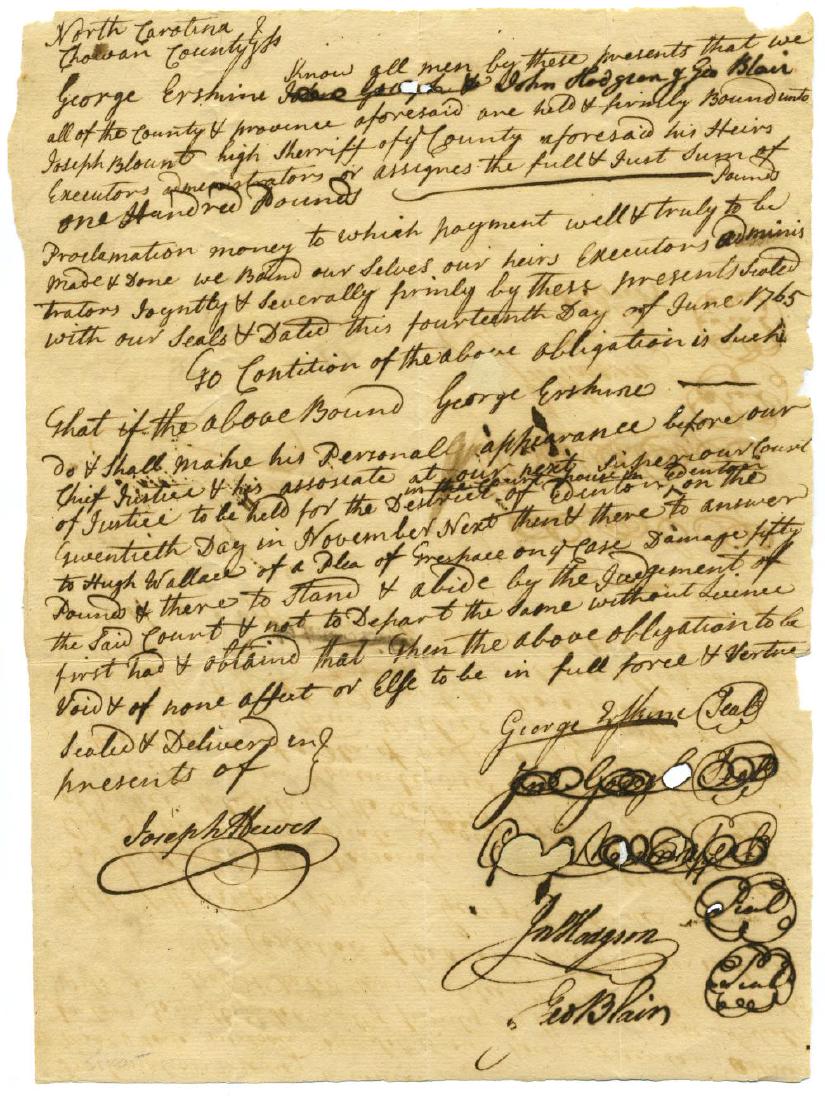 North Carolina }
Chowan County } ss
Know all men by these presents that we
George Erskine & John Hodgson & Geo Blair
all of the County & province aforesaid are held & firmly Bound unto
Joseph Blount high Sherriff of ye County aforesaid his Heirs
Executors administrators or assignes the full & Just Sum of
one Hundred Pounds Pounds
Proclamation money to which payment well & truly to be
made & Done we Bind our Selves our heirs Executors adminis
trators Joyntly & Severally firmly by these presents Sealed
with our Seals & Dated this fourteenth Day of June 1765
Condition of the above obligation is Such
that if the above Bound George Erskine
do & Shall make his Personall appearance before our
Chief Justice & his assosiate at our next Superiour Court
of Justice to be held for the District of Edenton in the Court house in Edenton on the
twentieth Day in November Next then & there to answer
to Hugh Wallace of a Plea of Trespace on ye Case Damage fifty
Pound & there to Stand & abide by the Judgement of
the Said Court & not to Depart the Same without Licence
first had & obtained that then the above obligation to be
Void & of none affect or Else to be in full force & Vertue
Sealed & Deliverd in }
presents of }
George Erskine Seal
Seal
Seal
Joseph Hewes
Jno Hodgson Seal
Geo Blair Seal